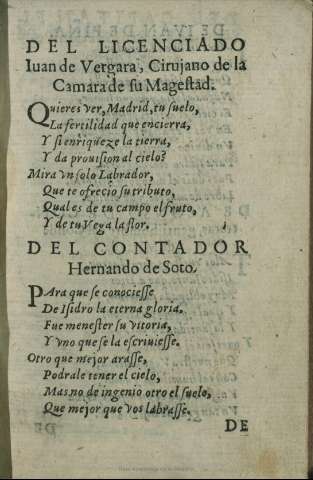 DEL LICENCIADO
Iuan de Vergara, Cirujano de la
Camara de su Magestad.
Quieres ver, Madrid, tu suelo,
La fertilidad que encierra,
Y si enriqueze la tierra,
Y da prouision al cielo?
Mira vn solo Labrador,
Que te ofrecio su tributo,
Qual es de tu campo el fruto,
Y de tu Vega la flor.
DEL CONTADOR
Hernando de Soto.
PAra que se conociesse
De Isidro la eterna gloria.
Fue menester su vitoria,
Y vno que se la escriuiesse.
Otro que mejor arasse,
Podrale tener el cielo,
Mas no de ingenio otro el suelo,
Que mejor que vos labrasse.
DE